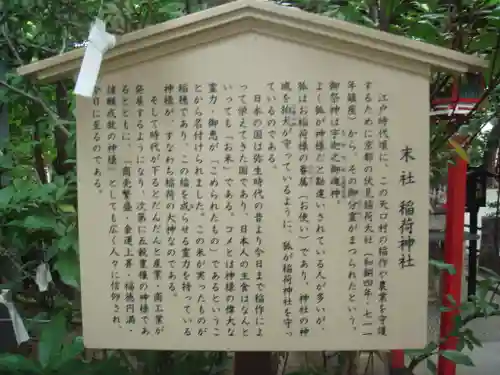 末社 稲荷神社
江戸時代頃に、この天口村の稲作や農業を守護
するために京都の伏見稲荷大社(和銅四年・七一一
年鎮座)から、その御分霊がまつられたという。
御祭神は宇迦之御魂神。
よく狐が神様だと勘違いされている人が多いが、
狐はお稲荷様の眷属(お使い)であり、神社の神
域を狛犬が守っているように、狐が稲荷神社を守っ
ているのである。
日本の国は弥生時代の昔より今日まで稲作によ
って栄えてきた国であり、日本人の主食はなんと
いっても「お米」である。コメとは神様の偉大な
霊力・御恵が「こめられたもの」であるというこ
とから名付けられました。この米が実ったものが
稲穂であり、この稲を成らせる霊力を持っている
神様が、すなわち稲荷の大神なのである。
そして時代が下るとだんだんと産業・商工業が
発展するようになり、次第に五穀豊穣の神様であ
るとともに、「商売繁盛・金運上昇・福徳円満・
諸願成就の神様」としても広く人々に信仰され、
今日に至るのである。